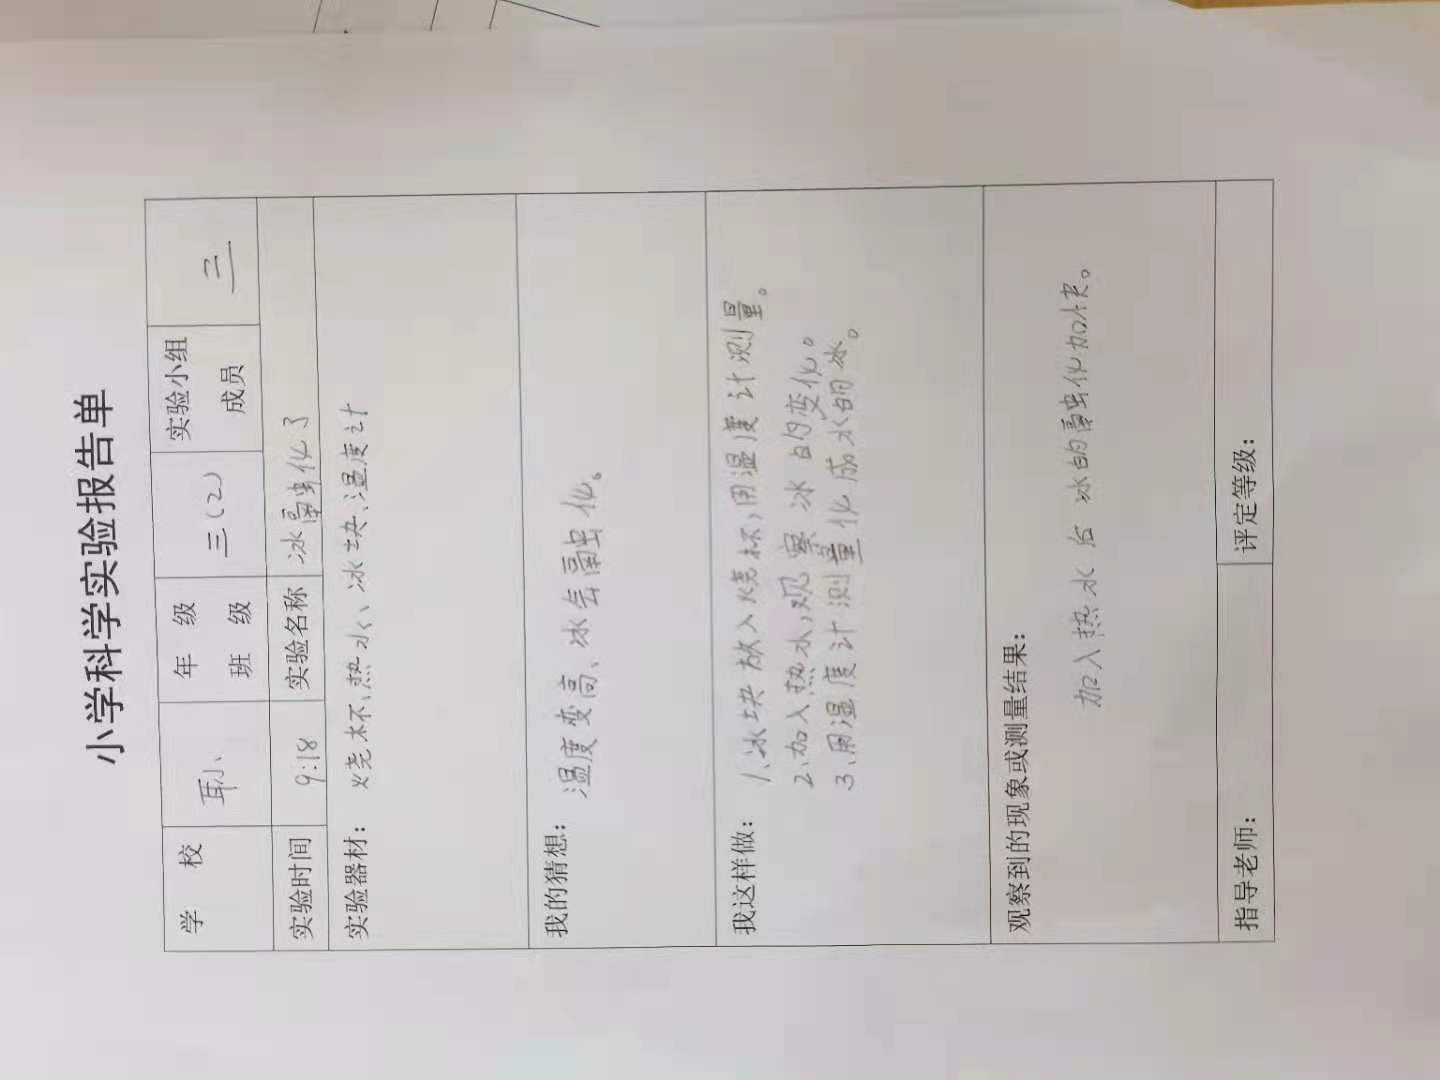 小学科学实验报告单
学 校 耳小 年 级 班 级 三(2) 实验小组 成员 三
实验时间 9:18 实验名称 冰融化了
实验器材: 烧杯、热水、冰块、温度计
我的猜想: 温度变高、冰会融化。
我这样做: 1、冰块放入烧杯,用温度计测量。
2、加入热水,观察冰的变化。
3、用温度计测量化成水的冰。
观察到的现象或测量结果:
加入热水后冰的融化加快。
指导老师: 评定等级: